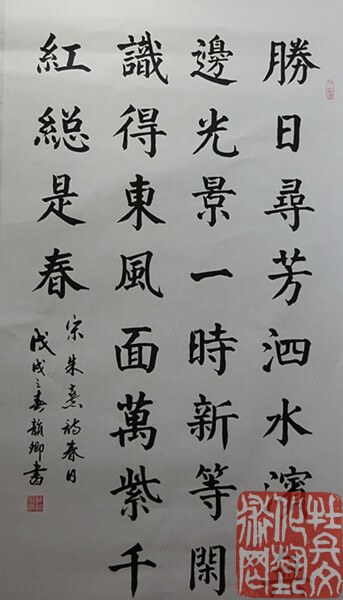 勝日尋芳泗水濱
邊光景一時新等閑
識得東風面萬紫千
紅緫是春
宋朱熹詩春日
戊戌之春韻卿書